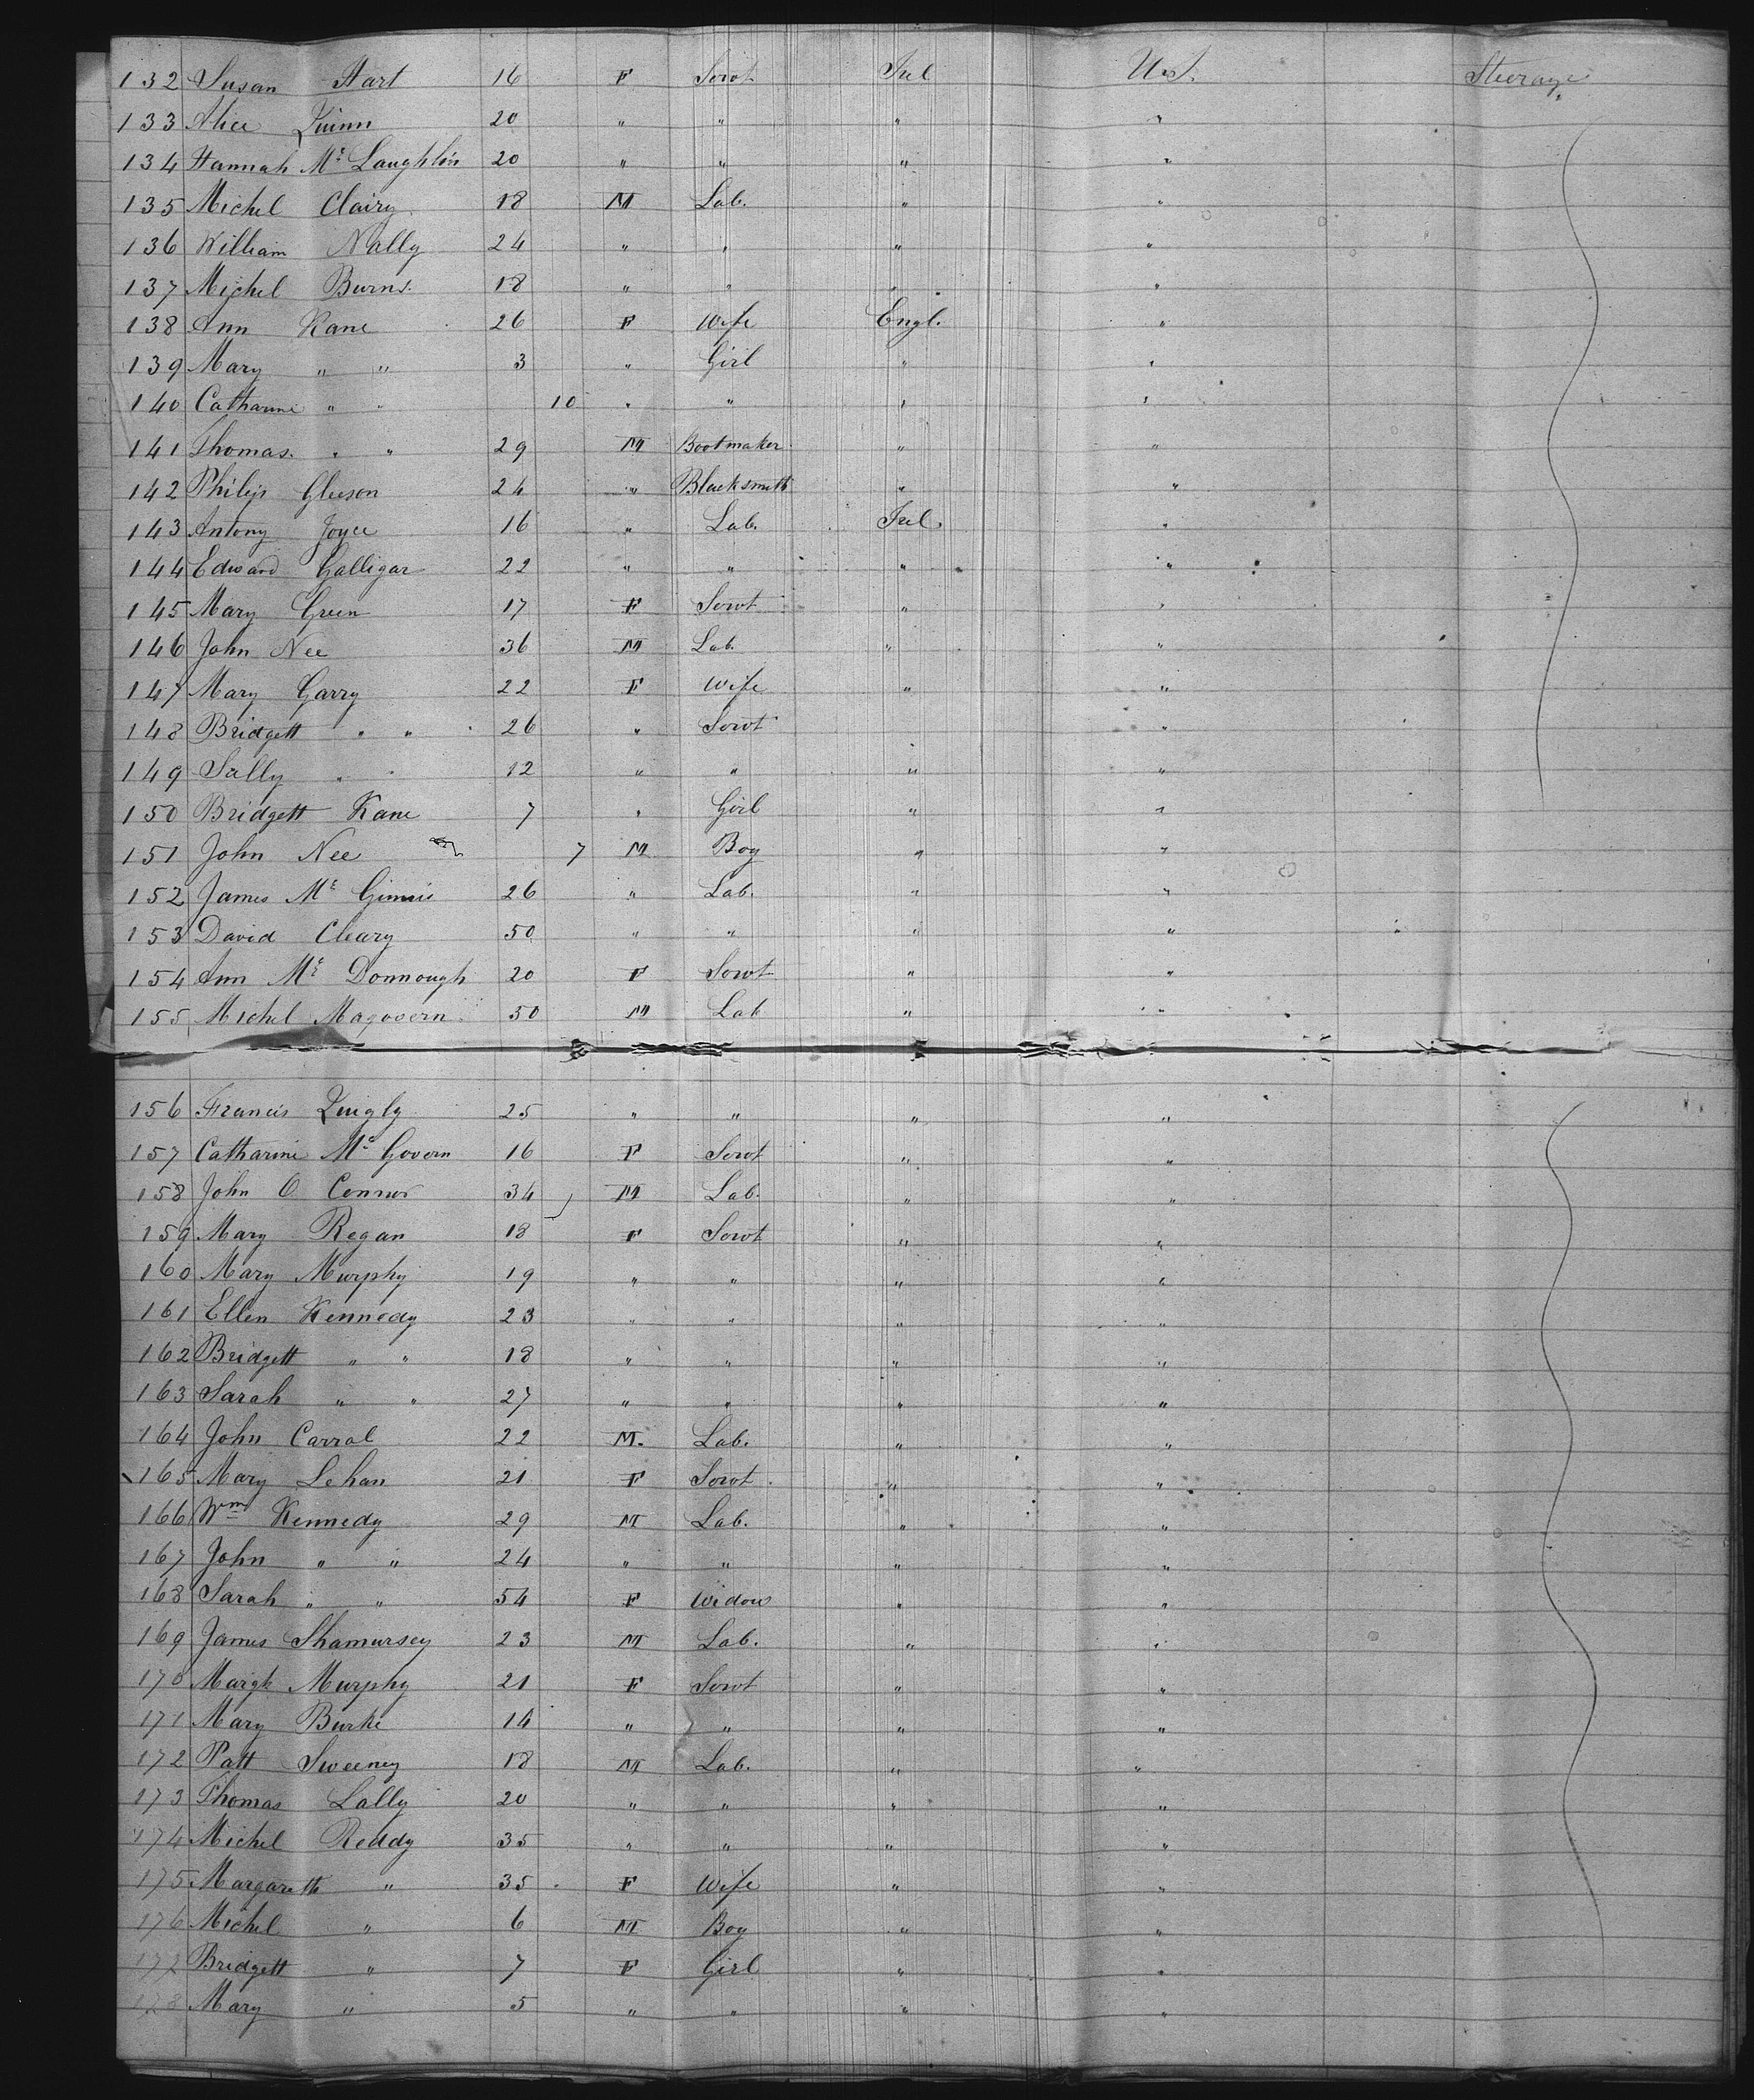 132 Susan Hart 16 F Servt Irel U.S. Steerage
133 Alice Quinn 20 " " " "
134 Hannah Mc Laughlin 20 " " " "
135 Michel Clairy 18 M Lab. " "
136 William Nally 24 " " " "
137 Michel Burns 18 " " " "
138 Ann Kane 26 F Wife Engl. "
139 Mary " " 3 " Girl " "
140 Catharine " " 10 " " " "
141 Thomas " " 29 M Bootmaker " "
142 Philip Gleeson 24 " Blacksmith " "
143 Antony Joyce 16 " Lab. Irel. "
144 Edward Galligar 22 " " " "
145 Mary Green 17 F Servt " "
146 John Nee 36 M Lab. " "
147 Mary Garry 22 F Wife " "
148 Bridgett " " 26 " Servt " "
149 Sally " " 12 " " " "
150 Bridgett Kane 7 " Girl " "
151 John Nee 7 M Boy " "
152 James Mc Ginnie 26 " Lab. " "
153 David Cleary 50 " " " "
154 Ann Mc Donnough 20 F Servt " "
155 Michel Magovern 50 M Lab " "
156 Francis Quigly 25 " " " "
157 Catharine Mc Govern 16 F Servt " "
158 John O Connor 34 M Lab. " "
159 Mary Regan 18 F Servt " "
160 Mary Murphy 19 " " " "
161 Ellen Kennedy 23 " " " "
162 Bridgett " " 18 " " " "
163 Sarah " " 27 " " " "
164 John Carrol 22 M. Lab. " "
165 Mary Lehan 21 F Servt " "
166 Wm Kennedy 29 M Lab. " "
167 John " " 24 " " " "
168 Sarah " " 54 F Widow " "
169 James Shamursey 23 M Lab. " "
170 Margt Murphy 21 F Servt " "
171 Mary Burke 14 " " " "
172 Patt Sweeney 18 M Lab. " "
173 Thomas Lally 20 " " " "
174 Michel Reddy 35 " " " "
175 Margareth " 35 F Wife " "
176 Michel " 6 M Boy " "
177 Bridgett " 7 F Girl " "
178 Mary " 5 " " " "